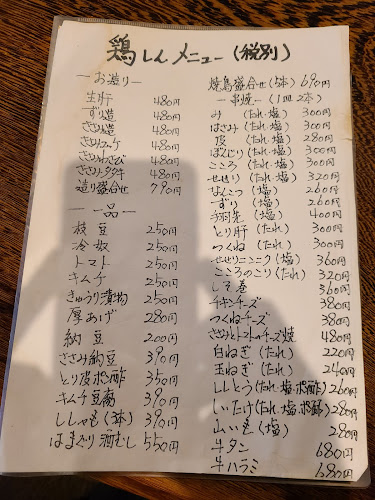 鶏しんメニュー(税別)
―お造り―
生肝 480円
ずり造 480円
ささみ造 480円
ささみユッケ 480円
ささみわさび 480円
ささみタタキ 480円
造り盛合せ 790円
―一品―
枝豆 250円
冷奴 250円
トマト 250円
キムチ 250円
きゅうり漬物 250円
厚あげ 280円
納豆 200円
ささみ納豆 390円
とり皮ポン酢 350円
キムチ豆腐 390円
ししゃも(3本) 390円
はまぐり酒むし 550円
焼鳥盛合せ(5本) 690円
―串焼―(1皿2本)
み (たれ・塩) 300円
はさみ (たれ・塩) 300円
皮 (たれ・塩) 280円
はんじり(たれ・塩) 300円
こころ (たれ・塩) 300円
せせり (たれ・塩) 320円
なんこつ (塩) 260円
ずり (塩) 260円
手羽先 (塩) 400円
とり肝 (たれ) 300円
つくね (たれ) 300円
せせりニンニク(塩) 360円
こころのこり(たれ) 320円
しそ巻 360円
チキンチーズ 380円
つくねチーズ 380円
ささみとトマトのチーズ焼 480円
白ねぎ(たれ) 220円
玉ねぎ(たれ) 240円
ししとう(たれ・塩・ポン酢) 260円
しいたけ(たれ・塩・ポン酢) 280円
山いも(塩) 280円
牛タン 680円
牛ハラミ 680円